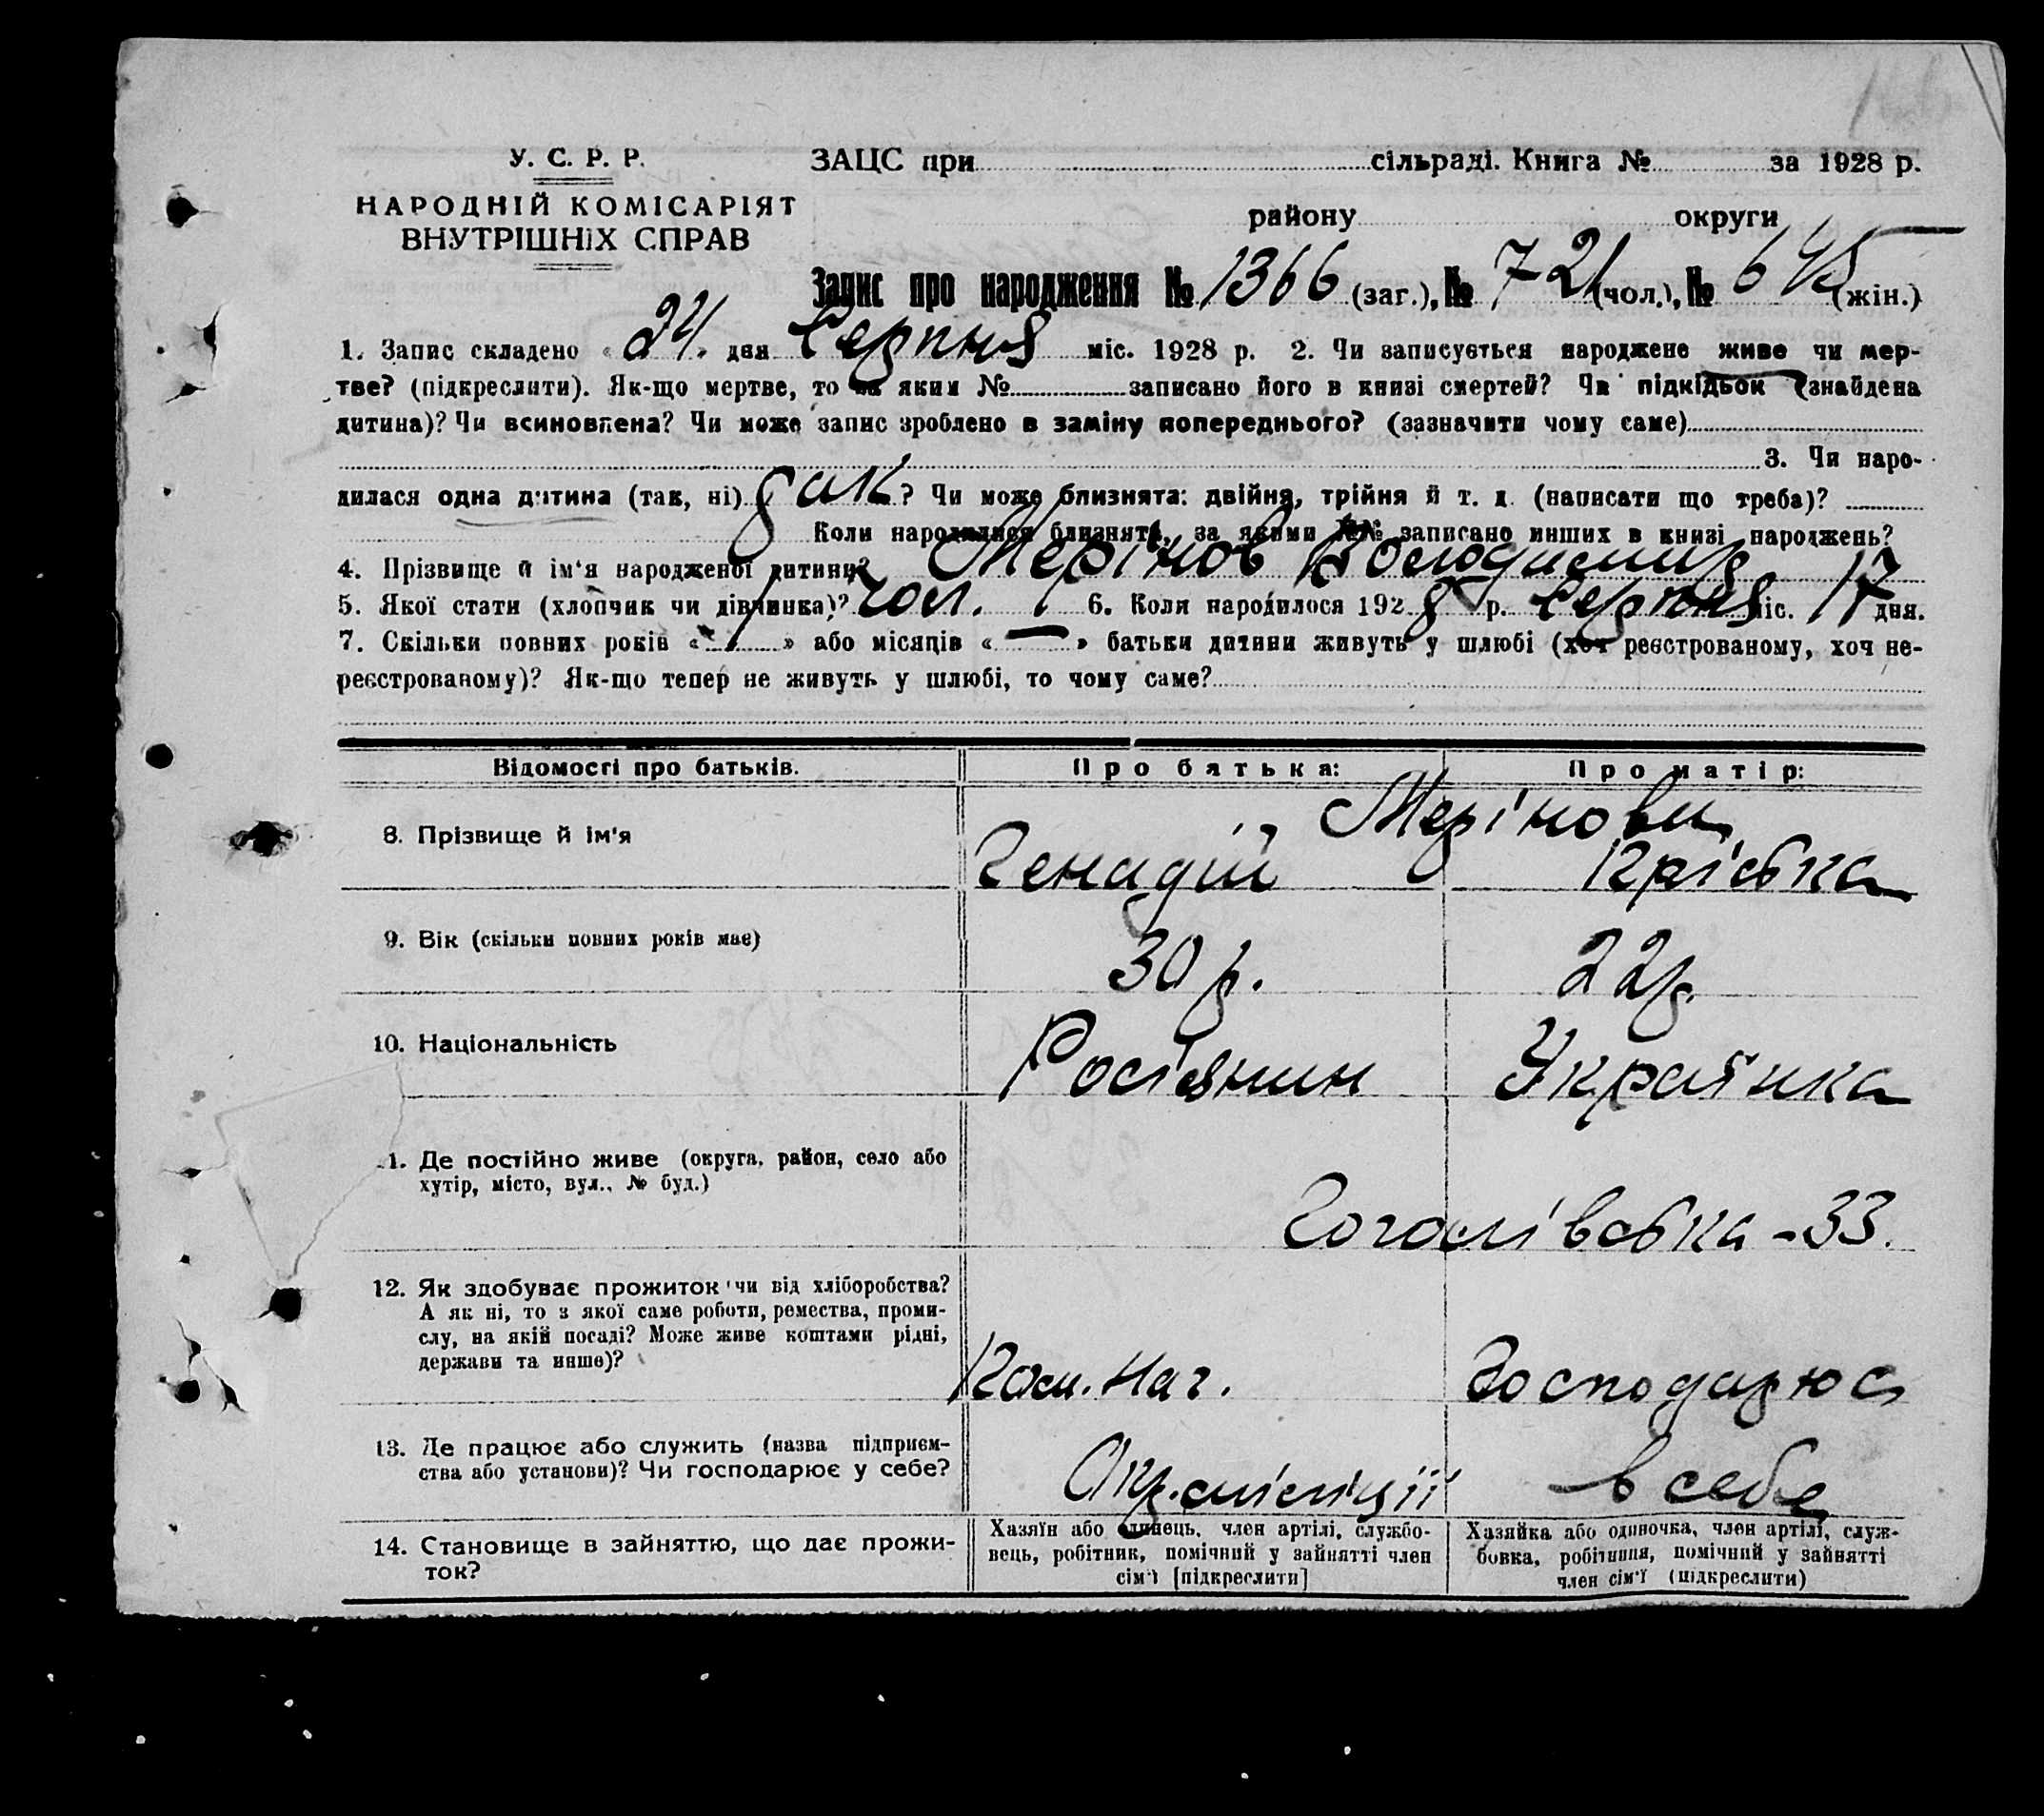 У. С. Р. Р.
НАРОДНІЙ КОМІСАРІЯТ
ВНУТРІШНІХ СПРАВ
ЗАЦС при сільраді. Книга № за 1928 р.
району округи
Запис про народження № 1366 (заг.), № 721 (чол.), № 645 (жін.)
1. Запис складено «24» дня Серпня міс. 1928 р. 2. Чи записується народжене живе чи мер-
тве? (підкреслити). Як-що мертве, то за яким № записано його в книзі смертей? Чи підкідьок (знайдена
дитина)? Чи всиновлена? Чи може запис зроблено в заміну попереднього? (зазначити чому саме)
3. Чи наро-
дилася одна дитина (так, ні) так? Чи може близнята: двійня, трійня й т. д. (написати що треба)?
Коли народилися близнята, за якими №№ записано инших в книзі народжень?
4. Прізвище й ім'я народженої дитини? Мерінов Володимир
5. Якої стати (хлопчик чи дівчинка)? чол. 6. Коли народилося 1928 р. Серпня міс. 17 дня.
7. Скільки повних років « 1 » або місяців « — » батьки дитини живуть у шлюбі (хоч реєстрованому, хоч не-
реєстрованому)? Як-що тепер не живуть у шлюбі, то чому саме?
Відомості про батьків. Про батька: Про матір:
Мерінови
8. Прізвище й ім'я Генадій
9. Вік (скільки повних років має) 30 р. 22 р.
10. Національність Росіянин Українка
11. Де постійно живе (округа, район, село або
хутір, місто, вул., № буд.)
Гоголівська - 33.
12. Як здобуває прожиток чи від хліборобства?
А як ні, то з якої саме роботи, ремества, проми-
слу, на якій посаді? Може живе коштами рідні,
держави та инше)?
Пом. Нач. Господарює
13. Де працює або служить (назва підприєм-
ства або установи)? Чи господарює у себе?
Окр. міліції в себе
14. Становище в зайняттю, що дає прожи-
ток?
Хазяїн або одинець, член артілі, службо-
вець, робітник, помічний у зайнятті член
сім'ї [підкреслити]
Хазяйка або одиночка, член артілі, служ-
бовка, робітниця, помічний у зайнятті
член сім'ї (підкреслити)